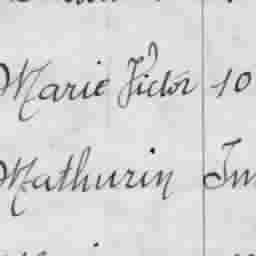 Marie Victor 10
Mathurin